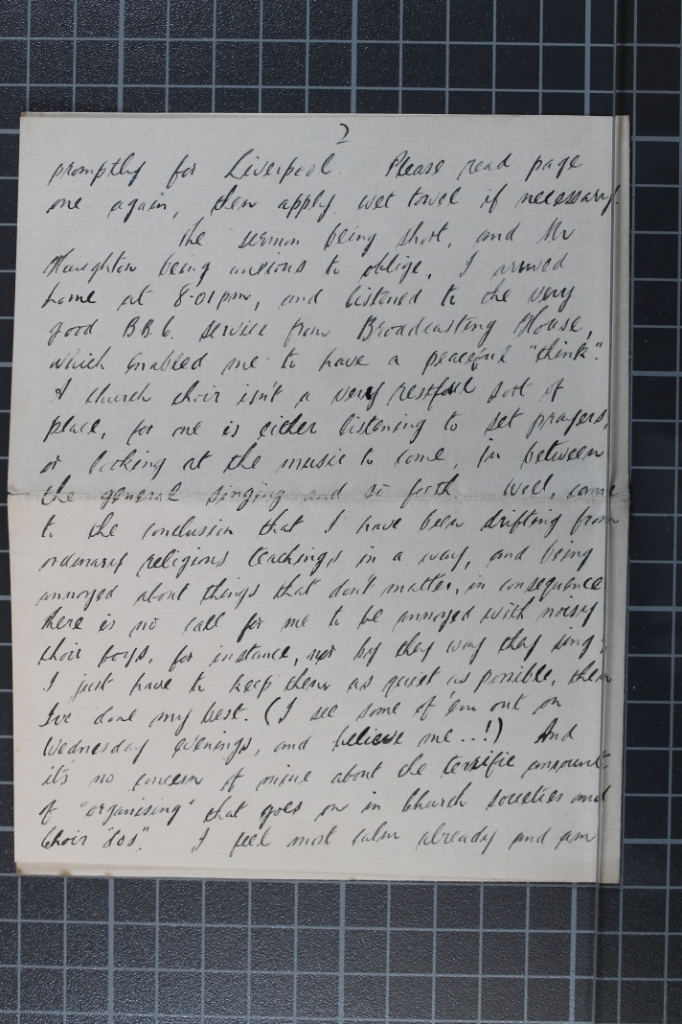 2
promptly for Liverpool. Please read page
one again, then apply wet towel if necessary.
The sermon being short, and Mr
Houghton being anxious to oblige, I arrived
home at 8.01pm, and listened to the very
good B.B.C. service from Broadcasting House,
which enabled me to have a peaceful "think".
A church choir isn't a very restful sort of
place, for one is either listening to set prayers,
or looking at the music to come, in between
the general singing and so forth. Well, came
to the conclusion that I have been drifting from
ordinary religious teachings in a way, and being
annoyed about things that don't matter, in consequence
there is no call for me to be annoyed with noisy
choir boys, for instance, nor by they way they sing;
I just have to keep them as quiet as possible, then
I've done my best. (I see some of 'em out on
Wednesday evenings, and believe me...!) And
it's no concern of mine about the terrific amount
of "organising" that goes on in Church societies and
Choir "dos". I feel most calm already and am